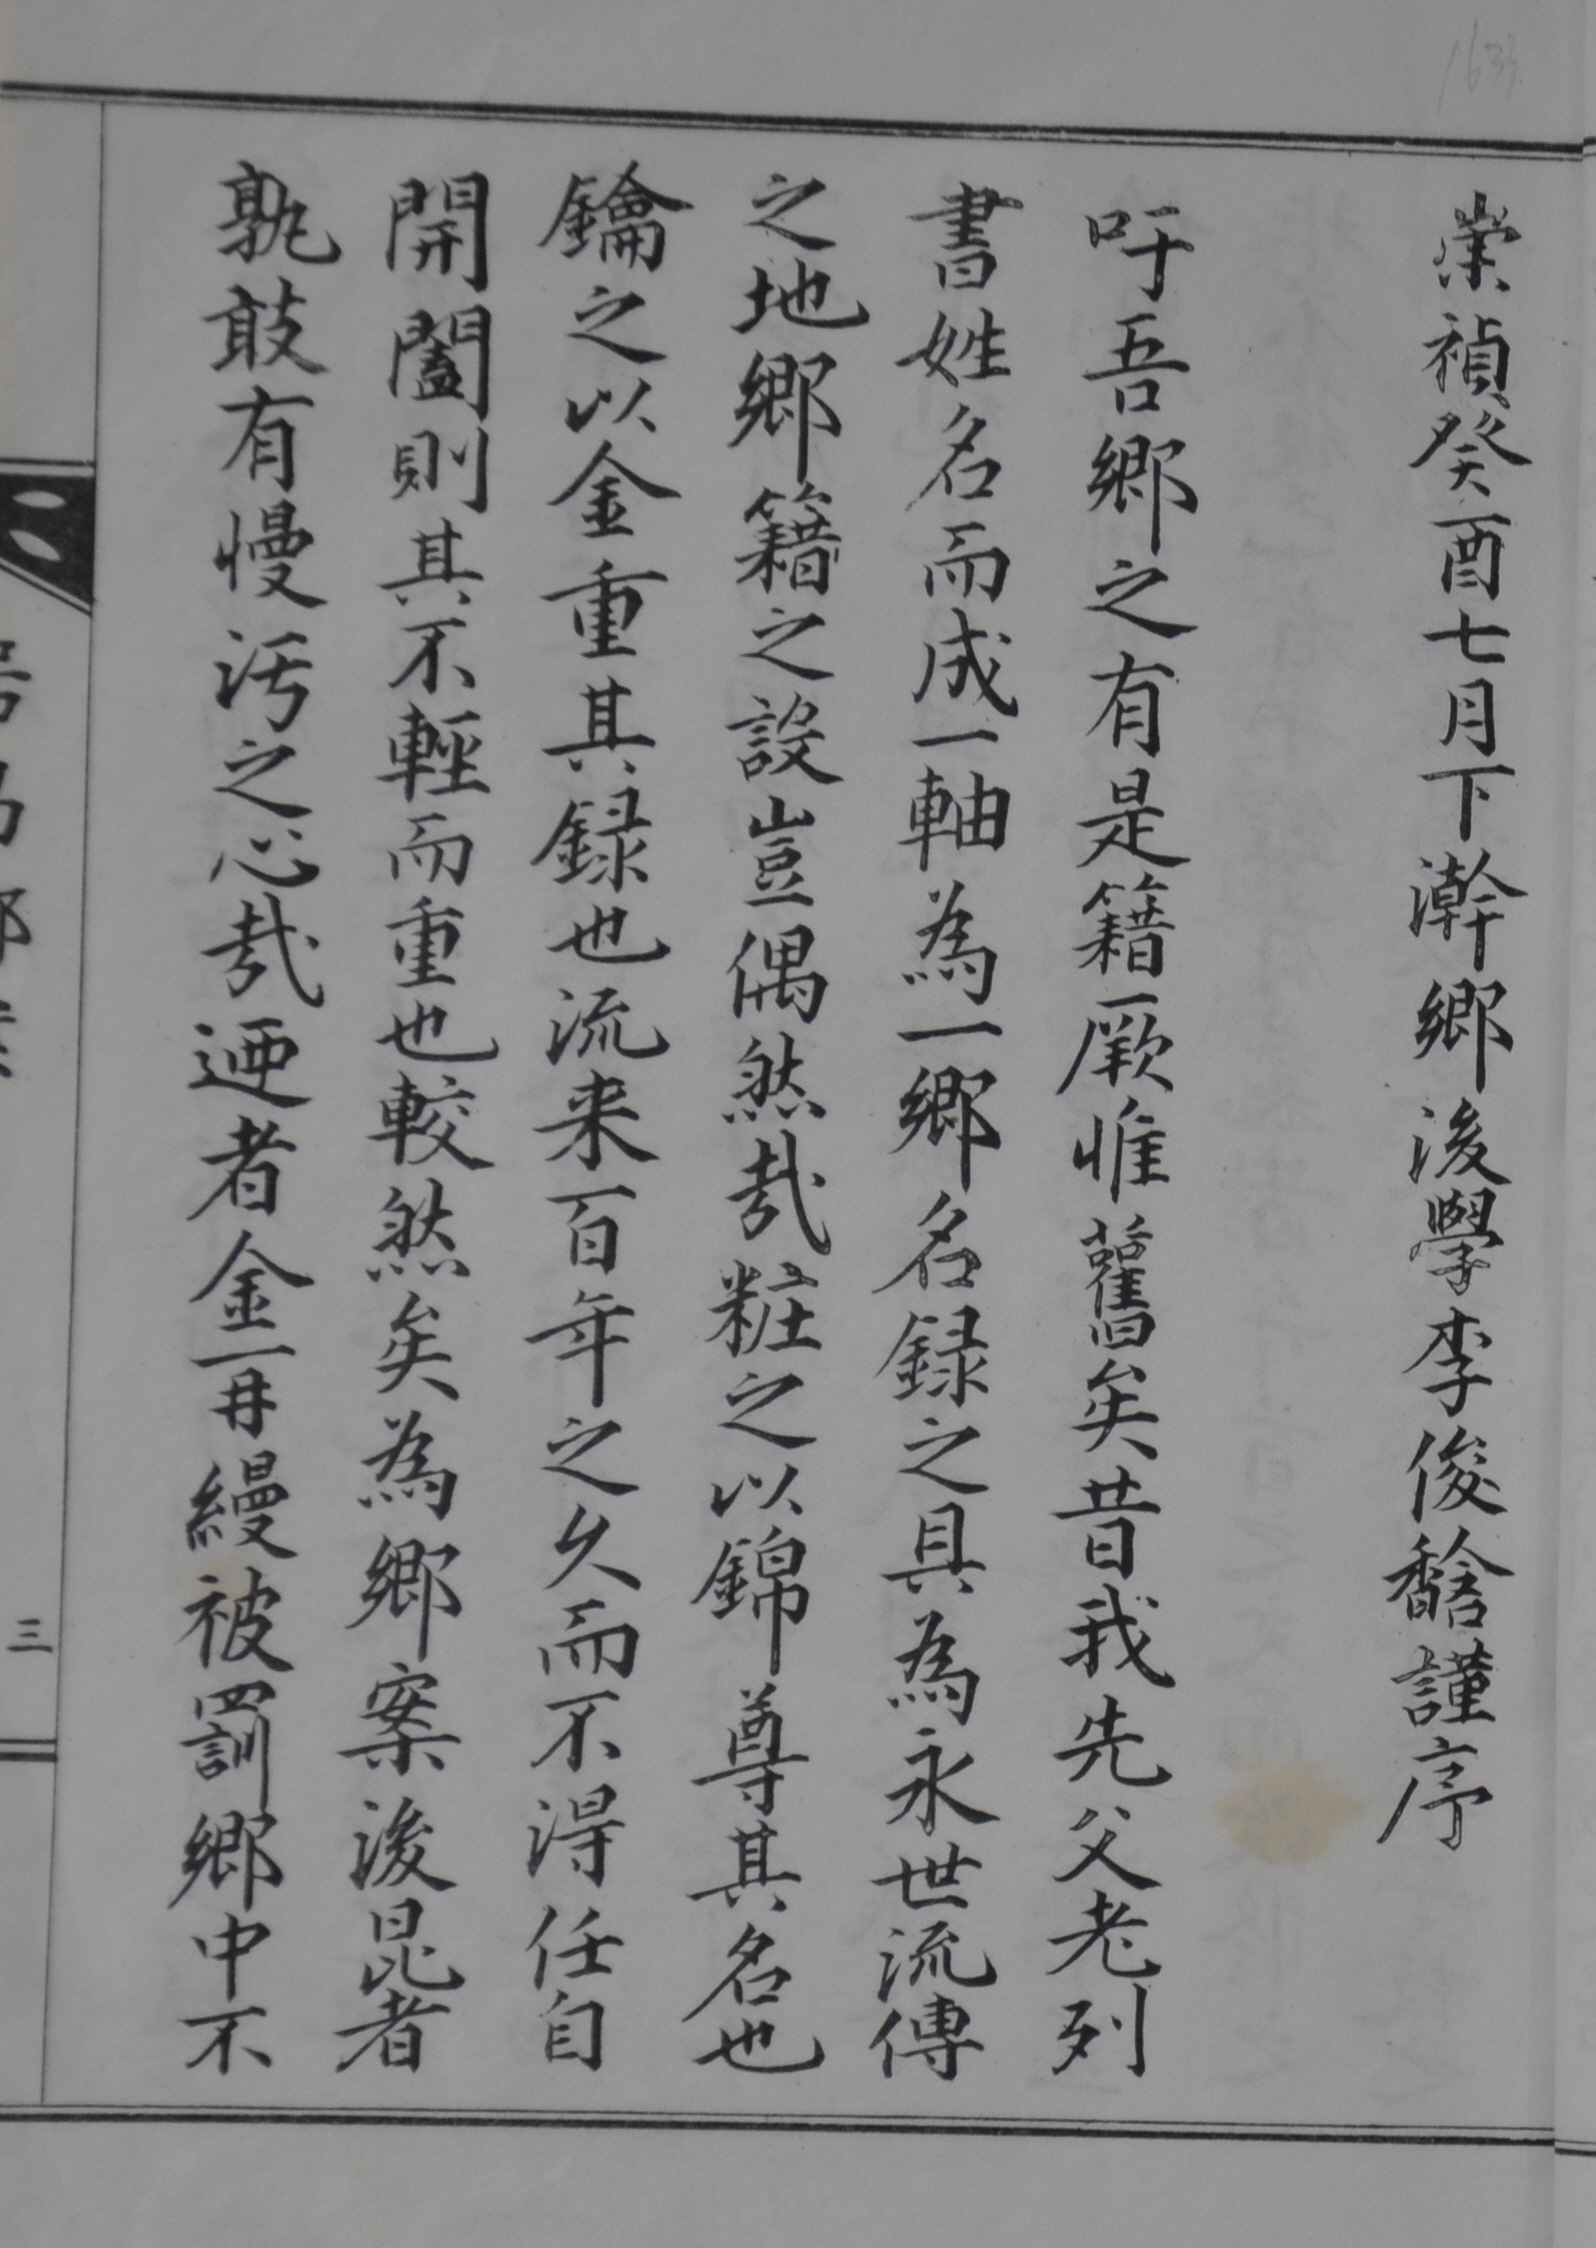 1633
崇禎癸酉七月下澣鄕後學李俊馠謹序
吁吾鄕之有是籍厥惟舊矣昔我先父老列
書姓名而成一軸為一鄕名録之具為永世流傳
之地鄕籍之設豈偶然哉粧之以錦尊其名也
鑰之以金重其録也流来百年之久而不得任自
開闔則其不輕而重也較然矣為鄕案後昆者
孰敢有慢汚之心哉迺者金一冉縵被罰鄕中不
三